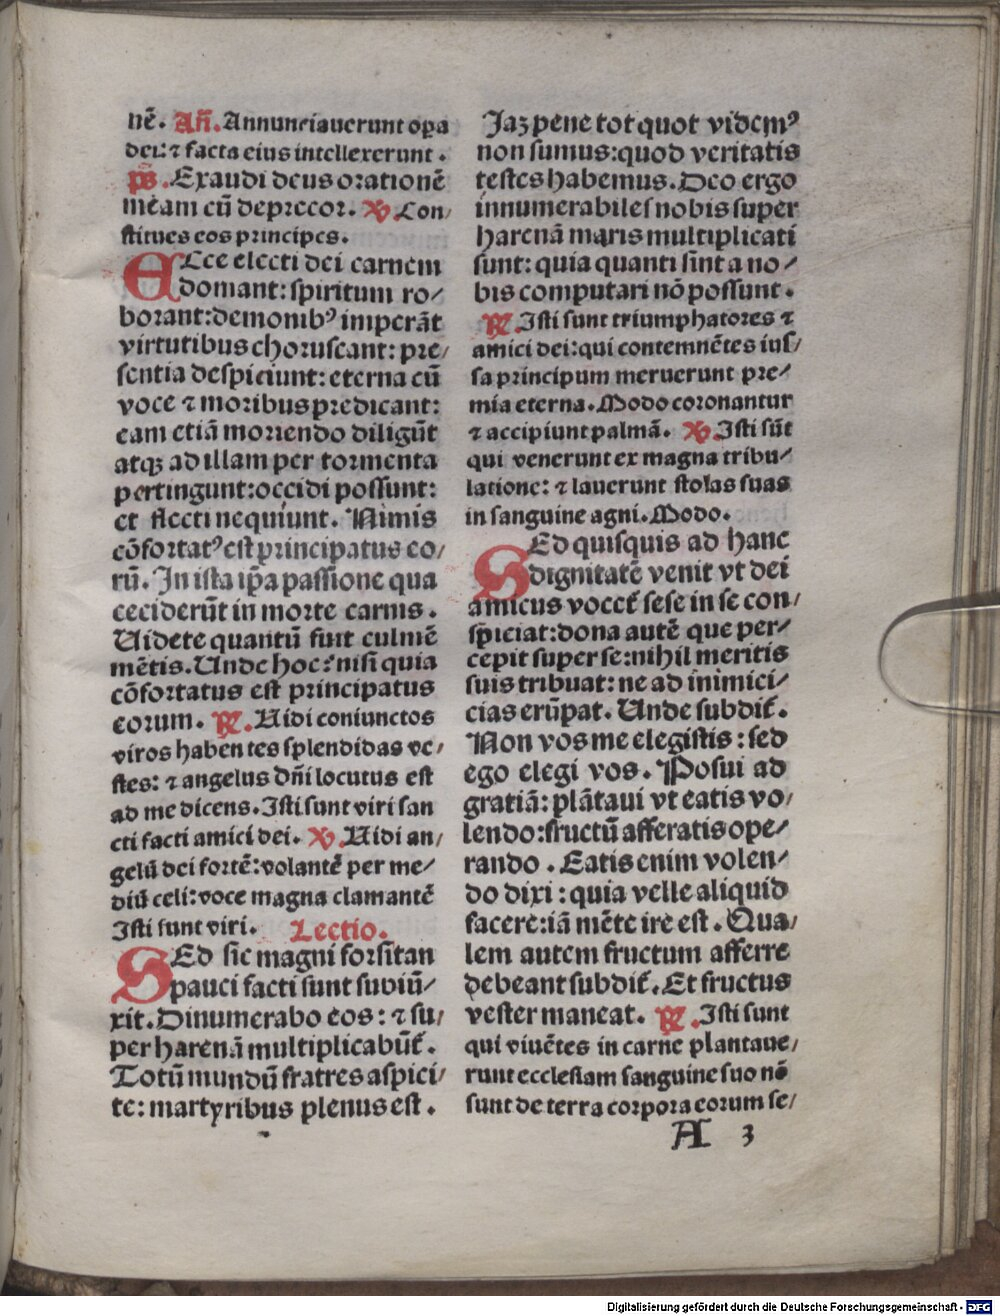 nē. Añ. Annunciauerunt opa
dei: ⁊ facta eius intellexerunt.
ps̄. Exaudi deus orationē
meam cū deprecor. ℣. Con⸗
stitues eos principes.
ECce electi dei carnem
domant: spiritum ro⸗
borant: demonibꝰ imperāt
virtutibus choruscant: pre⸗
sentia despiciunt: eterna cū
voce ⁊ moribus predicant:
eam etiā moriendo diligūt
atqꝫ ad illam per tormenta
pertingunt: occidi possunt:
et flecti nequiunt. Nimis
cōfortatꝰ est principatus eo⸗
rū. In ista ip̄a passione qua
ceciderūt in morte carnis.
Uidete quantū fuit culmē
mētis. Unde hoc: nisi quia
cōfortatus est principatus
eorum. ℟. Uidi coniunctos
viros haben tes splendidas ve⸗
stes: ⁊ angelus dn̄i locutus est
ad me dicens. Isti sunt viri san
cti facti amici dei. ℣. Uidi an⸗
gelū dei fortē: volantē per me⸗
diū celi: voce magna clamantē
Isti sunt viri. Lectio.
SEd sic magni forsitan
pauci facti sunt subiū⸗
xit. Dinumerabo eos: ⁊ su⸗
per harenā multiplicabūt̄.
Totū mundū fratres aspici⸗
te: martyribus plenus est.
Jaꝫ pene tot quot videmꝰ
non sumus: quod veritatis
testes habemus. Deo ergo
innumerabiles nobis super
harenā maris multiplicati
sunt: quia quanti sint a no⸗
bis computari nō possunt.
℟. Isti sunt triumphatores ⁊
amici dei: qui contemnētes ius⸗
sa principum meruerunt pre⸗
mia eterna. Modo coronantur
⁊ accipiunt palmā. ℣. Isti sūt
qui venerunt ex magna tribu⸗
latione: ⁊ lauerunt stolas suas
in sanguine agni. Modo.
SEd quisquis ad hanc
dignitatē venit vt dei
amicus vocet̄ sese in se con⸗
spiciat: dona autē que per⸗
cepit super se: nihil meritis
suis tribuat: ne ad inimici⸗
cias erūpat. Unde subdit̄.
Non vos me elegistis: sed
ego elegi vos. Posui ad
gratiā: plātaui vt eatis vo⸗
lendo: fructū afferatis ope⸗
rando. Eatis enim volen⸗
do dixi: quia velle aliquid
facere: iā mēte ire est. Qua⸗
lem autem fructum afferre
debeant subdit̄. Et fructus
vester maneat. ℟. Isti sunt
qui viuētes in carne plantaue⸗
runt ecclesiam sanguine suo nō
sunt de terra corpora eorum se⸗
A 3
Digitalisierung gefördert durch die Deutsche Forschungsgemeinschaft - DFG